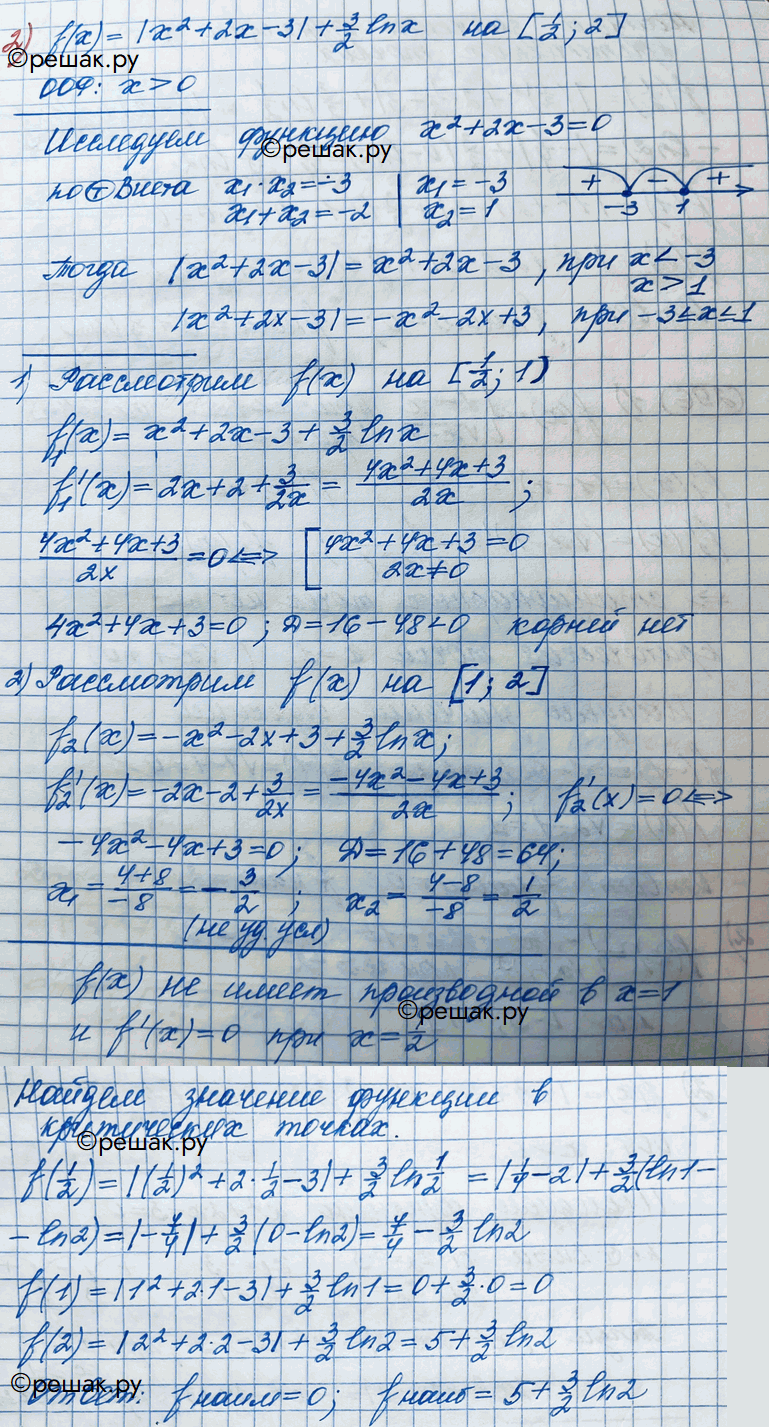 2) f(x) = |x² + 2x - 3| + 3/2 ln x на [1/2; 2]
©решак.ру
ООФ: x > 0
Исследуем функцию x² + 2x - 3 = 0
©решак.ру
по Т Виета x₁ · x₂ = -3 | x₁ = -3
x₁ + x₂ = -2 | x₂ = 1
+ - +
-3 1
Тогда |x² + 2x - 3| = x² + 2x - 3, при x < -3
x > 1
|x² + 2x - 3| = -x² - 2x + 3, при -3 ≤ x ≤ 1
1) Рассмотрим f(x) на [1/2; 1)
f₁(x) = x² + 2x - 3 + 3/2 ln x
f₁'(x) = 2x + 2 + 3/2x = (4x² + 4x + 3)/2x ;
(4x² + 4x + 3)/2x = 0 <=> [ 4x² + 4x + 3 = 0
2x ≠ 0
4x² + 4x + 3 = 0 ; D = 16 - 48 < 0 корней нет
2) Рассмотрим f(x) на [1; 2]
f₂(x) = -x² - 2x + 3 + 3/2 ln x ;
f₂'(x) = -2x - 2 + 3/2x = (-4x² - 4x + 3)/2x ; f₂'(x) = 0 <=>
-4x² - 4x + 3 = 0 ; D = 16 + 48 = 64 ;
x₁ = (4+8)/-8 = -3/2 ; x₂ = (4-8)/-8 = 1/2
(не уд. усл)
f(x) не имеет производной в x = 1
©решак.ру
и f'(x) = 0 при x = 1/2
Найдем значение функции в
критических точках.
©решак.ру
f(1/2) = |(1/2)² + 2 · 1/2 - 3| + 3/2 ln 1/2 = |1/4 - 2| + 3/2 (ln 1 -
- ln 2) = |-7/4| + 3/2 (0 - ln 2) = 7/4 - 3/2 ln 2
f(1) = |1² + 2·1 - 3| + 3/2 ln 1 = 0 + 3/2 · 0 = 0
f(2) = |2² + 2·2 - 3| + 3/2 ln 2 = 5 + 3/2 ln 2
©решак.ру
Ответ: fнаим = 0 ; fнаиб = 5 + 3/2 ln 2